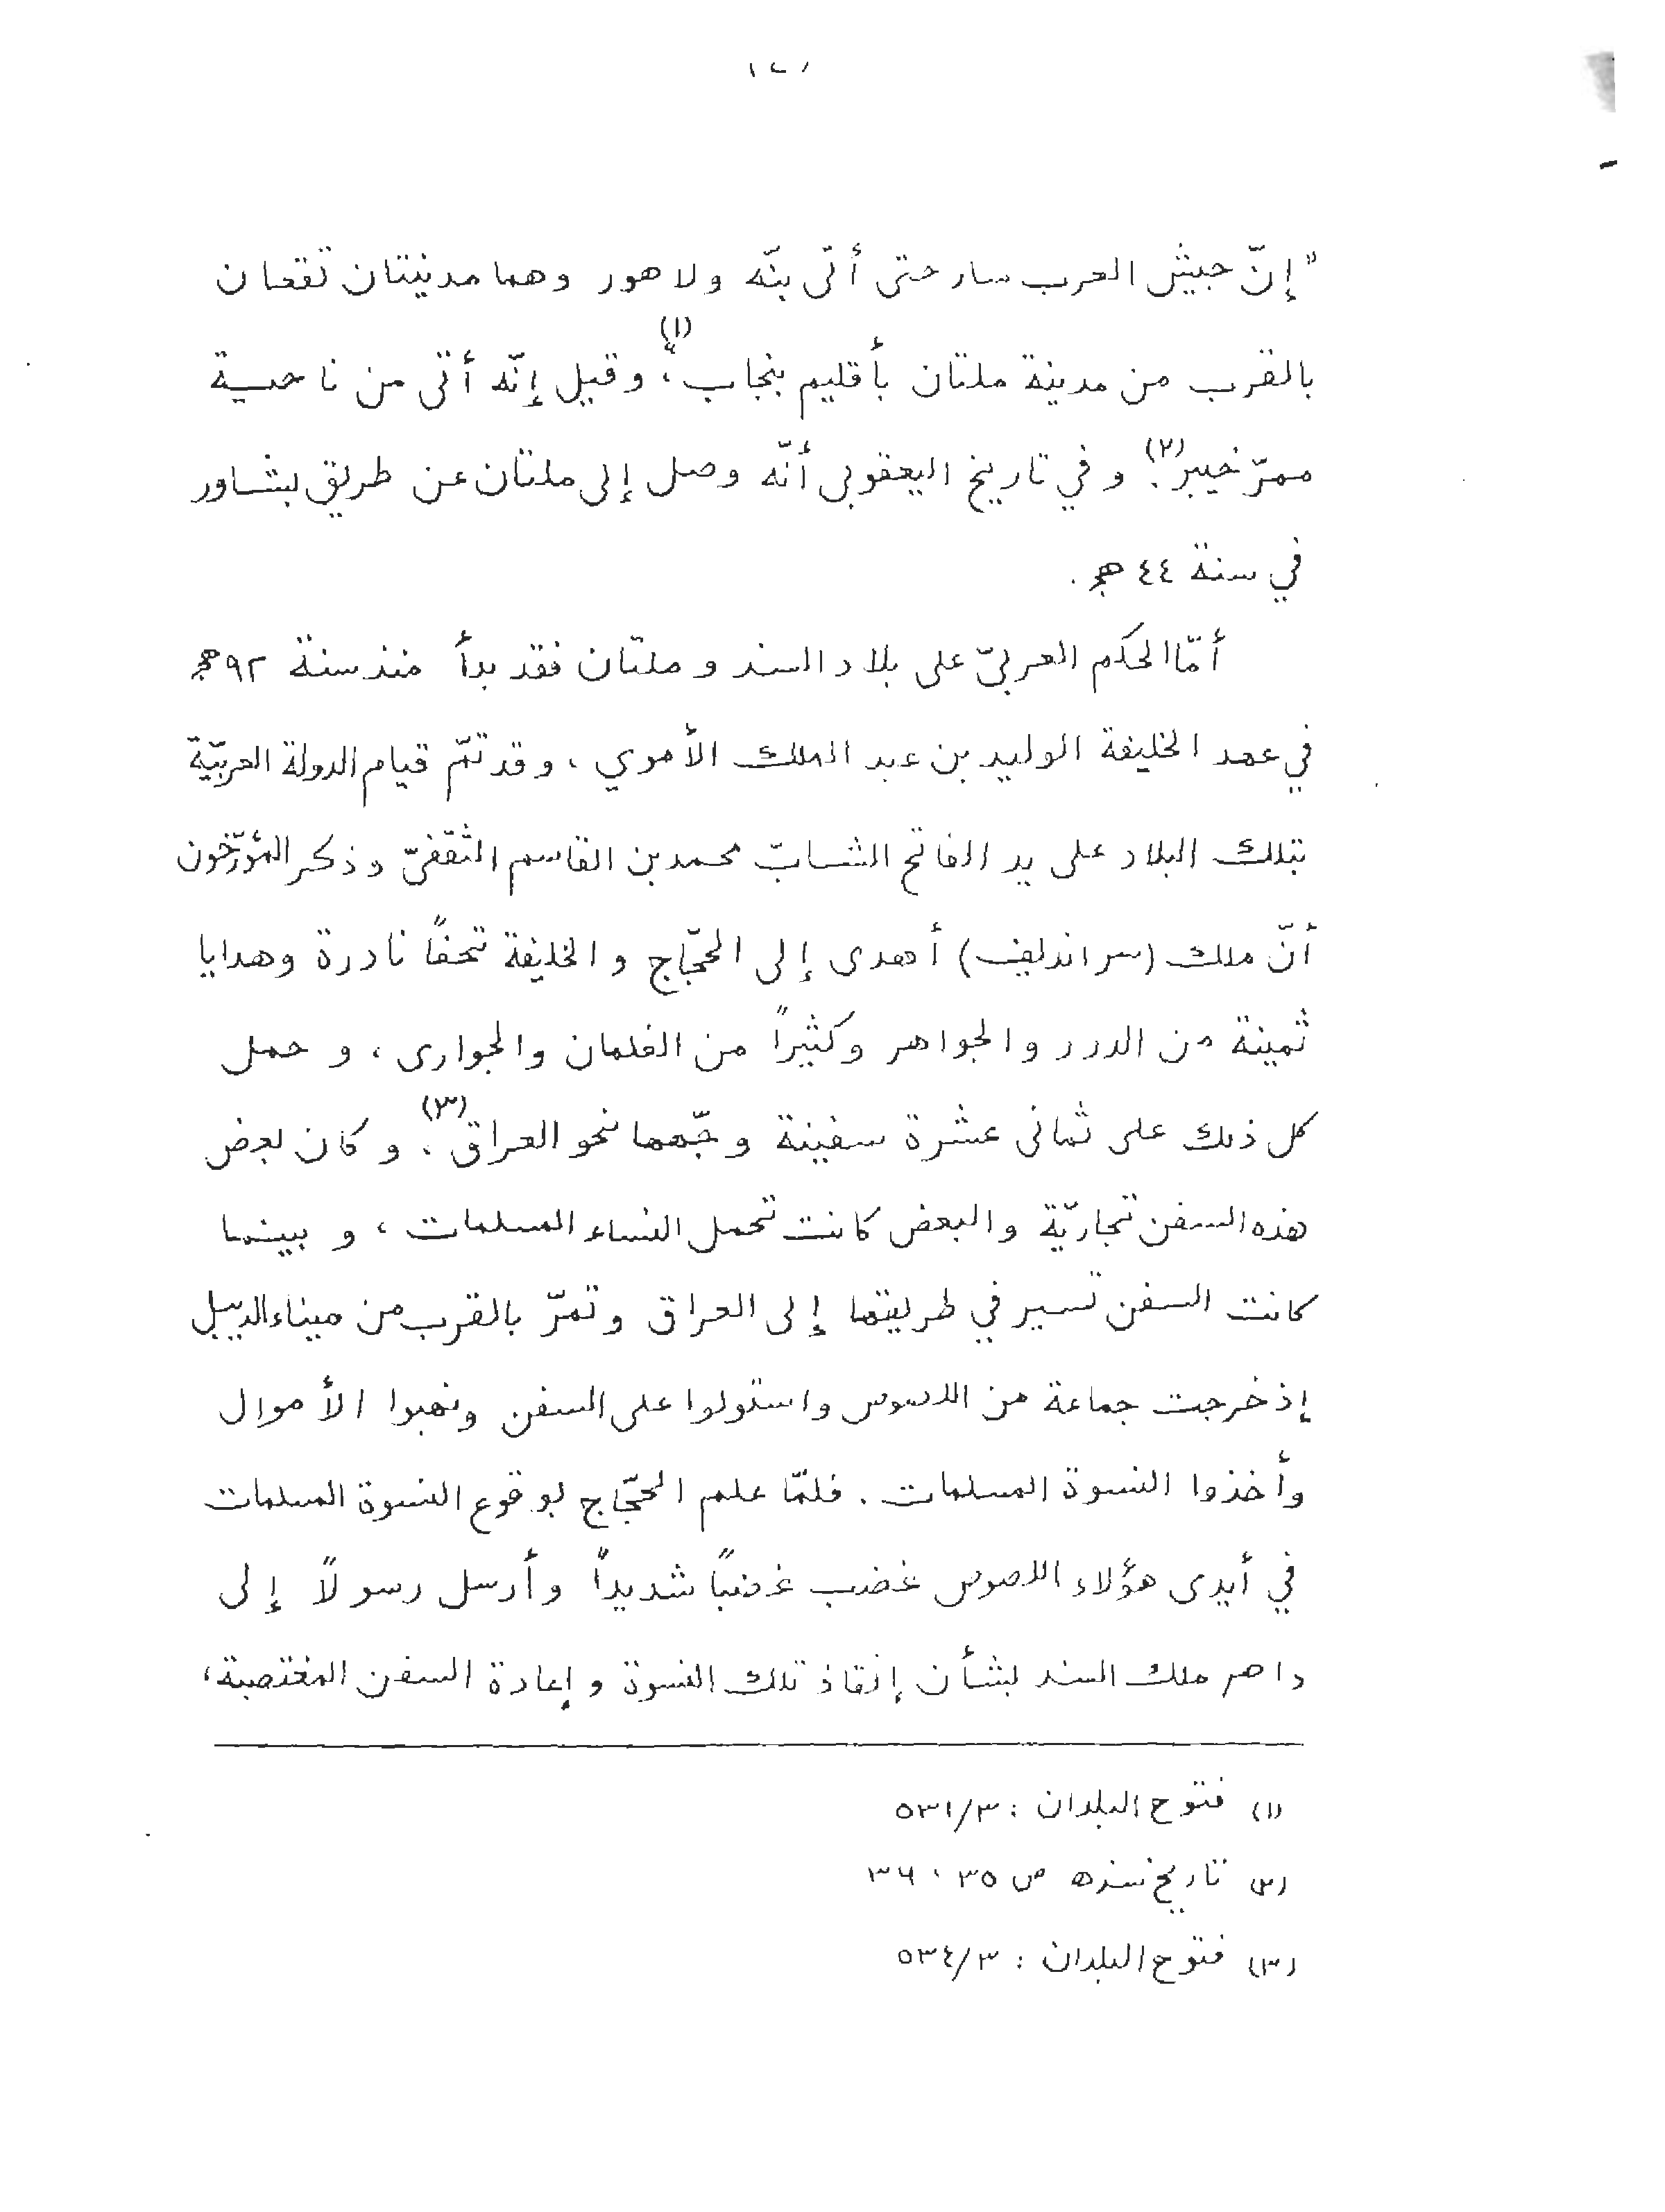 "إنّ جيش العرب سار حتى أتى بنّه ولاهور وهما مدينتان تقعان
بالقرب من مدينة ملتان بأقليم بنجاب"(١)، وقيل إنّه أتى من ناحية
ممرّ خيبر(٢). وفي تاريخ اليعقوبى أنّه وصل إلى ملتان عن طريق بشاور
في سنة ٤٤ هـ.
أمّا الحكم العربيّ على بلاد السند وملتان فقد بدأ منذ سنة ٩٢ هـ
في عهد الخليفة الوليد بن عبد الملك الأموي، وقد تمّ قيام الدولة العربيّة
بتلك البلاد على يد الفاتح الشابّ محمد بن القاسم الثّقفىّ وذكر المؤرّخون
أنّ ملك (سراندليف) أهدى إلى الحجّاج والخليفة تحفًا نادرة وهدايا
ثمينة من الدرر والجواهر وكثيراً من الغلمان والجوارى، وحمل
كل ذلك على ثمانى عشرة سفينة وجّهها نحو العراق(٣). وكان بعض
هذه السفن تجاريّة والبعض كانت تحمل النساء المسلمات، وبينما
كانت السفن تسير في طريقها إلى العراق وتمرّ بالقرب من ميناء الديبل
إذ خرجت جماعة من اللصوص واستولوا على السفن ونهبوا الأموال
وأخذوا النسوة المسلمات. فلمّا علم الحجّاج بوقوع النسوة المسلمات
في أيدى هؤلاء اللصوص غضب غضبًا شديداً وأرسل رسولاً إلى
داهر ملك السند بشأن إنقاذ تلك النسوة وإعادة السفن المغتصبة،
(١) فتوح البلدان : ٥٣١/٣
(٢) تاريخ سنده ص ٣٥، ٣٦
(٣) فتوح البلدان : ٥٣٤/٣